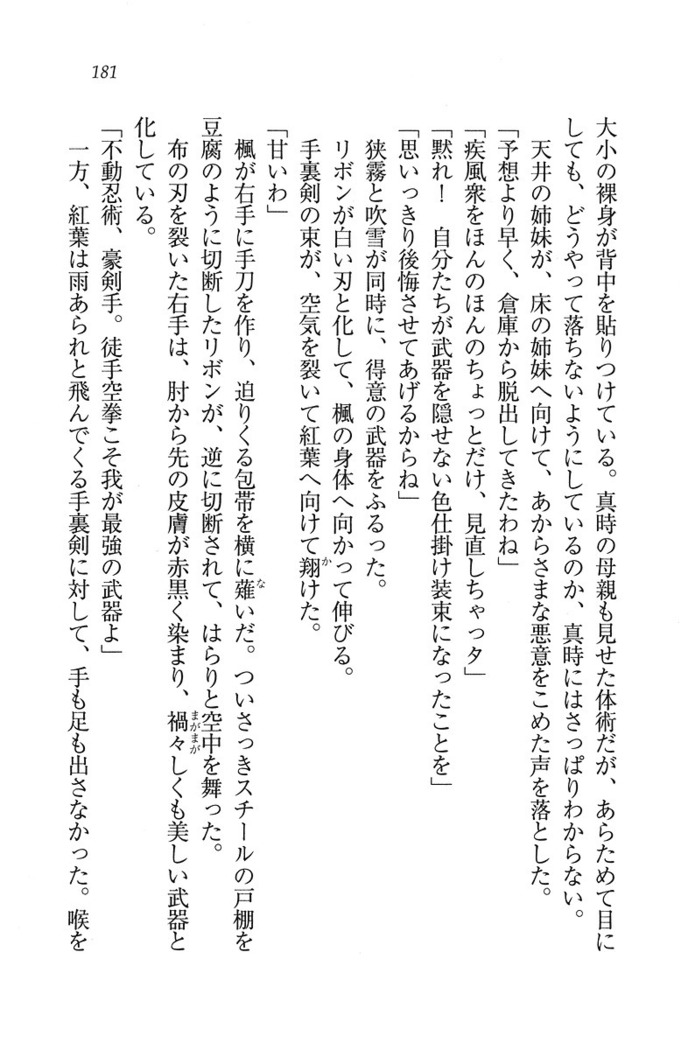 181
大小の裸身が背中を貼りつけている。真時の母親も見せた体術だが、あらためて目に
しても、どうやって落ちないようにしているのか、真時にはさっぱりわからない。
天井の姉妹が、床の姉妹へ向けて、あからさまな悪意をこめた声を落とした。
「予想より早く、倉庫から脱出してきたわね」
「疾風衆をほんのほんのちょっとだけ、見直しちゃっタ」
「黙れ！　自分たちが武器を隠せない色仕掛け装束になったことを」
「思いっきり後悔させてあげるからね」
狭霧と吹雪が同時に、得意の武器をふるった。
リボンが白い刃と化して、楓の身体へ向かって伸びる。
手裏剣の束が、空気を裂いて紅葉へ向けて翔けた。
「甘いわ」
楓が右手に手刀を作り、迫りくる包帯を横に薙いだ。ついさっきスチールの戸棚を
豆腐のように切断したリボンが、逆に切断されて、はらりと空中を舞った。
布の刃を裂いた右手は、肘から先の皮膚が赤黒く染まり、禍々しくも美しい武器と
化している。
「不動忍術、豪剣手。徒手空拳こそ我が最強の武器よ」
一方、紅葉は雨あられと飛んでくる手裏剣に対して、手も足も出さなかった。喉を